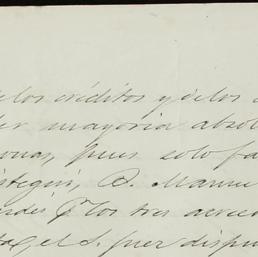 los créditos y de los
mayoria absol
sonas, pues solo fa
stegui, D. Manu
los tres acree
el S. Juez dispu